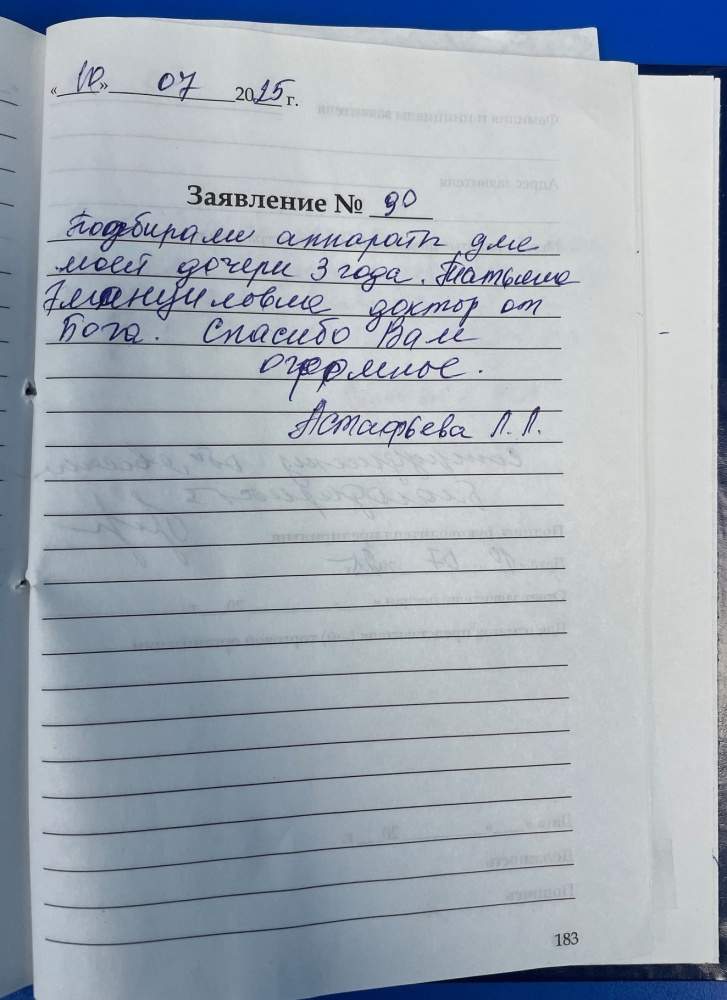 «10» 07 2025 г.
Заявление № 90
Подбирали аппараты для
моей дочери 3 года. Татьяна
Эмануиловна доктор от
Бога. Спасибо Вам
огромное.
Астафьева Л.Л.
183